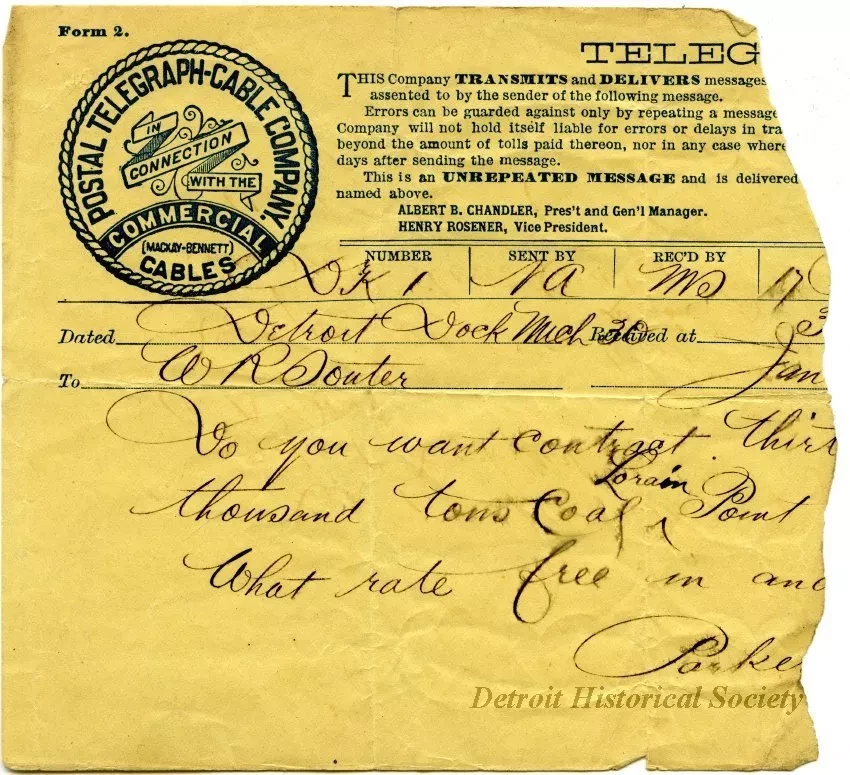 Form 2.
POSTAL TELEGRAPH-CABLE COMPANY.
IN
CONNECTION
WITH THE
COMMERCIAL
(MACKAY-BENNETT)
CABLES
TELEG
THIS Company TRANSMITS and DELIVERS messages
assented to by the sender of the following message.
Errors can be guarded against only by repeating a message
Company will not hold itself liable for errors or delays in tra
beyond the amount of tolls paid thereon, nor in any case where
days after sending the message.
This is an UNREPEATED MESSAGE and is delivered
named above.
ALBERT B. CHANDLER, Pres't and Gen'l Manager.
HENRY ROSENER, Vice President.
NUMBER SENT BY REC'D BY
DK 1 NA MS 17
Dated Detroit Dock Mich 30 Received at
To W R Souter Jan
Do you want contract thirt
thousand tons Coal Lorain Point
What rate free in and
Parke
Detroit Historical Society